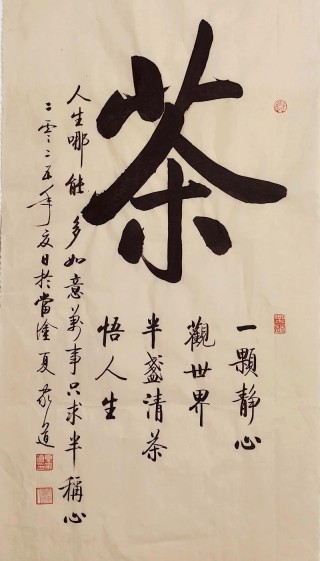 茶
一顆靜心
觀世界
半盞清茶
悟人生
人生哪能多如意萬事只求半稱心
二零二五年夏日於當塗夏家道